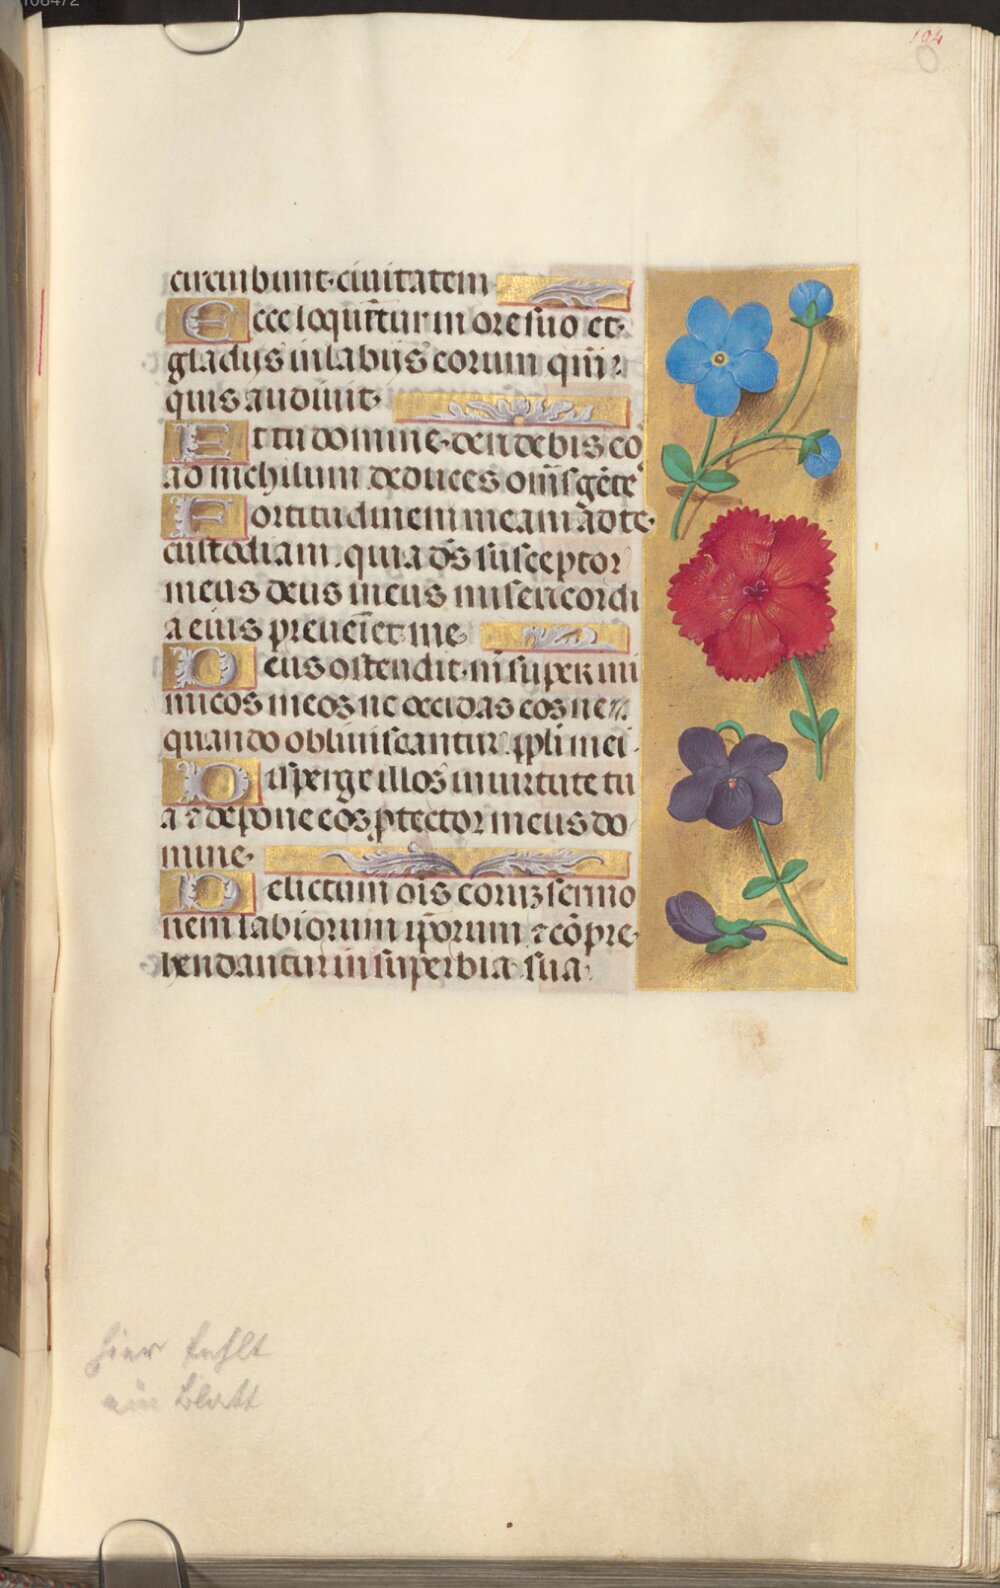 108472
104
circuibunt·ciuitatem
Ecce loqūtur in ore suo et
gladius in labiis eorum qm̄
quis audiuit·
Et tu domine·deridebis eo
ad nichilum deduces om̄s gētē
Fortitudinem meam ad te·
custodiam. quia ds̄ susceptor
meus deus meus misericordi
a eius preueīet me·
Deus ostendit·m̄ super ini
micos meos ne occidas eos ne
quando obliuiscantur. ppli mei·
Disperge illos in uirtute tu
a ⁊ depone eos ꝓtector meus do
mine·
Delictum oīs eorūꝫ sermo
nem labiorum ip̄orum ⁊ cōpre·
hendantur in superbia sua·
hier fehlt
ein Blatt